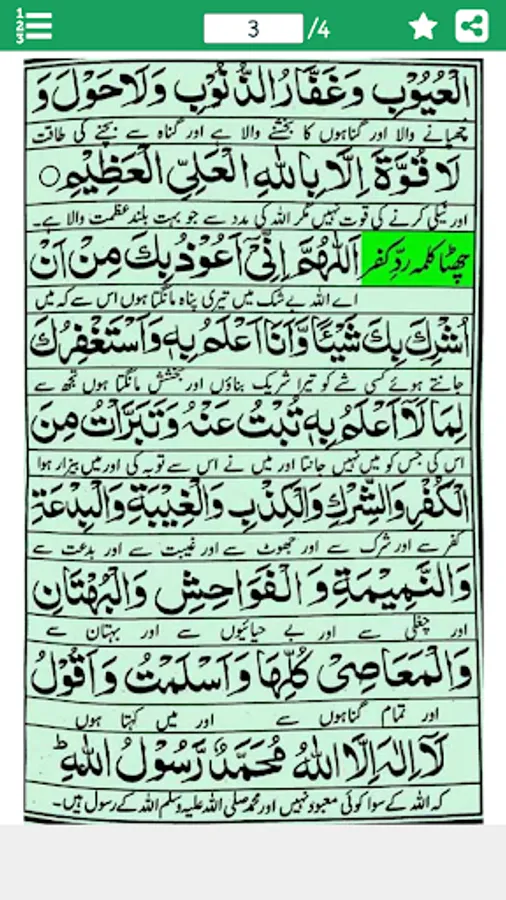 1
2
3
3 /4
الْعُيُوْبِ وَغَفَّارُ الذُّنُوْبِ وَلَاحَوْلَ وَ
چھپانے والا اور گناہوں کا بخشنے والا ہے اور گناہ سے بچنے کی طاقت
لَا قُوَّةَ اِلَّا بِاللّٰهِ الْعَلِیِّ الْعَظِیْمِ○
اور نیکی کرنے کی قوت نہیں مگر اللہ کی مدد سے جو بہت بلند عظمت والا ہے۔
چھٹا کلمہ ردِّ کفر اَللّٰهُمَّ اِنِّیْٓ اَعُوْذُ بِكَ مِنْ اَنْ
اے اللہ بے شک میں تیری پناہ مانگتا ہوں اس سے کہ میں
اُشْرِكَ بِكَ شَیْئًا وَّاَنَا اَعْلَمُ بِهٖ وَاَسْتَغْفِرُكَ
جانتے ہوئے کسی شے کو تیرا شریک بناؤں اور بخشش مانگتا ہوں تجھ سے
لِمَا لَآ اَعْلَمُ بِهٖ تُبْتُ عَنْهُ وَتَبَرَّاْتُ مِنَ
اس کی جس کو میں نہیں جانتا اور میں نے اس سے توبہ کی اور میں بیزار ہوا
الْكُفْرِ وَالشِّرْكِ وَالْكِذْبِ وَالْغِیْبَةِ وَالْبِدْعَةِ
کفر سے اور شرک سے اور جھوٹ سے اور غیبت سے اور بدعت سے
وَالنَّمِیْمَةِ وَ الْفَوَاحِشِ وَالْبُهْتَانِ
اور چغلی سے اور بے حیائیوں سے اور بہتان سے
وَالْمَعَاصِیْ كُلِّهَا وَاَسْلَمْتُ وَاَقُوْلُ
اور تمام گناہوں سے اور میں کہتا ہوں
لَآ اِلٰهَ اِلَّا اللّٰهُ مُحَمَّدٌ رَّسُوْلُ اللّٰهِ ؕ
کہ اللہ کے سوا کوئی معبود نہیں اور محمد صلی اللہ علیہ وسلم اللہ کے رسول ہیں۔